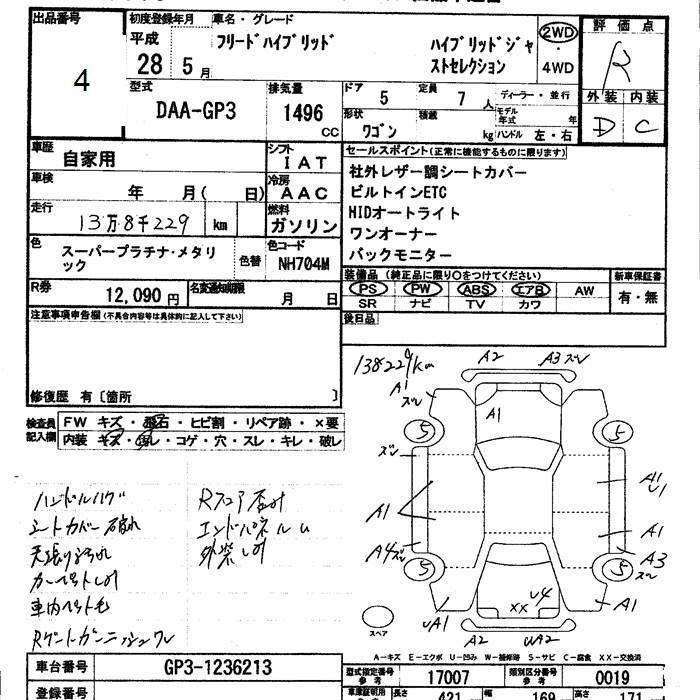 出品番号
4
初度登録年月
平成
28 5 月
車名・グレード
フリードハイブリッド
ハイブリッドジャ
ストセレクション
2WD
・
4WD
評価点
R
型式
DAA-GP3
排気量
1496
cc
ドア
5
定員
7 人
ディーラー・並行
形状
ワゴン
積載
kg
モデル年式
年
ハンドル 左・右
外装 内装
D C
車歴
自家用
シフト
I A T
車検
年 月( 日)
冷房
A A C
走行
13万8千229 km
燃料
ガソリン
色
スーパープラチナ・メタリ
ック
色替
色コード
NH704M
R券
12,090 円
名変通知期限
月 日
セールスポイント(正常に機能するものに限ります)
社外レザー調シートカバー
ビルトインETC
HIDオートライト
ワンオーナー
バックモニター
装備品 (純正品に限り○をつけてください)
新車保証書
PS PW ABS エアB AW
有・無
SR ナビ TV カワ
後日品
注意事項申告欄(不具合内容等は具体的に記入して下さい)
修復歴 有〔箇所 〕
検査員
記入欄
FW キズ・飛石・ヒビ割・リペア跡・×要
内装 キズ・汚レ・コゲ・穴・スレ・キレ・破レ
138229km
A2
A3 ズレ
A1
ズレ
A1
5
5
ズレ
A1
U1
A1
A1
A4ズレ
A3
ズレ
5
5
U4
XX
uA1
A1
A2
UA2
スペア
ハンドルハゲ
シートカバー破れ
天張り汚れ
カーペットしみ
車内ペット毛
Rゲートガーニッシュワレ
Rフロア歪み
エンドパネルU
外装しみ
A-キズ E-エクボ U-凹み W-補修跡 S-サビ C-腐食 XX-交換済
車台番号
GP3-1236213
型式指定番号
参考
17007
類別区分番号
参考
0019
登録番号
車庫証明用
長さ
421
幅
169
高さ
171